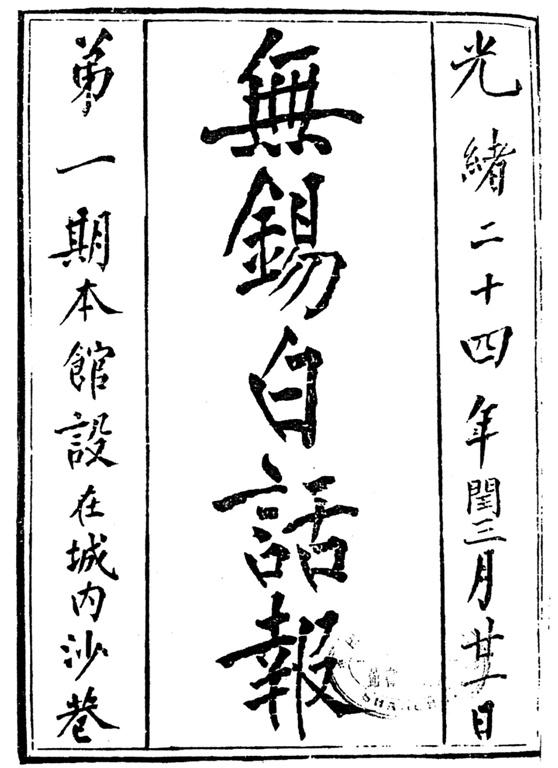 光緒二十四年閏三月廿一日
無錫白話報
第一期本館設在城內沙巷